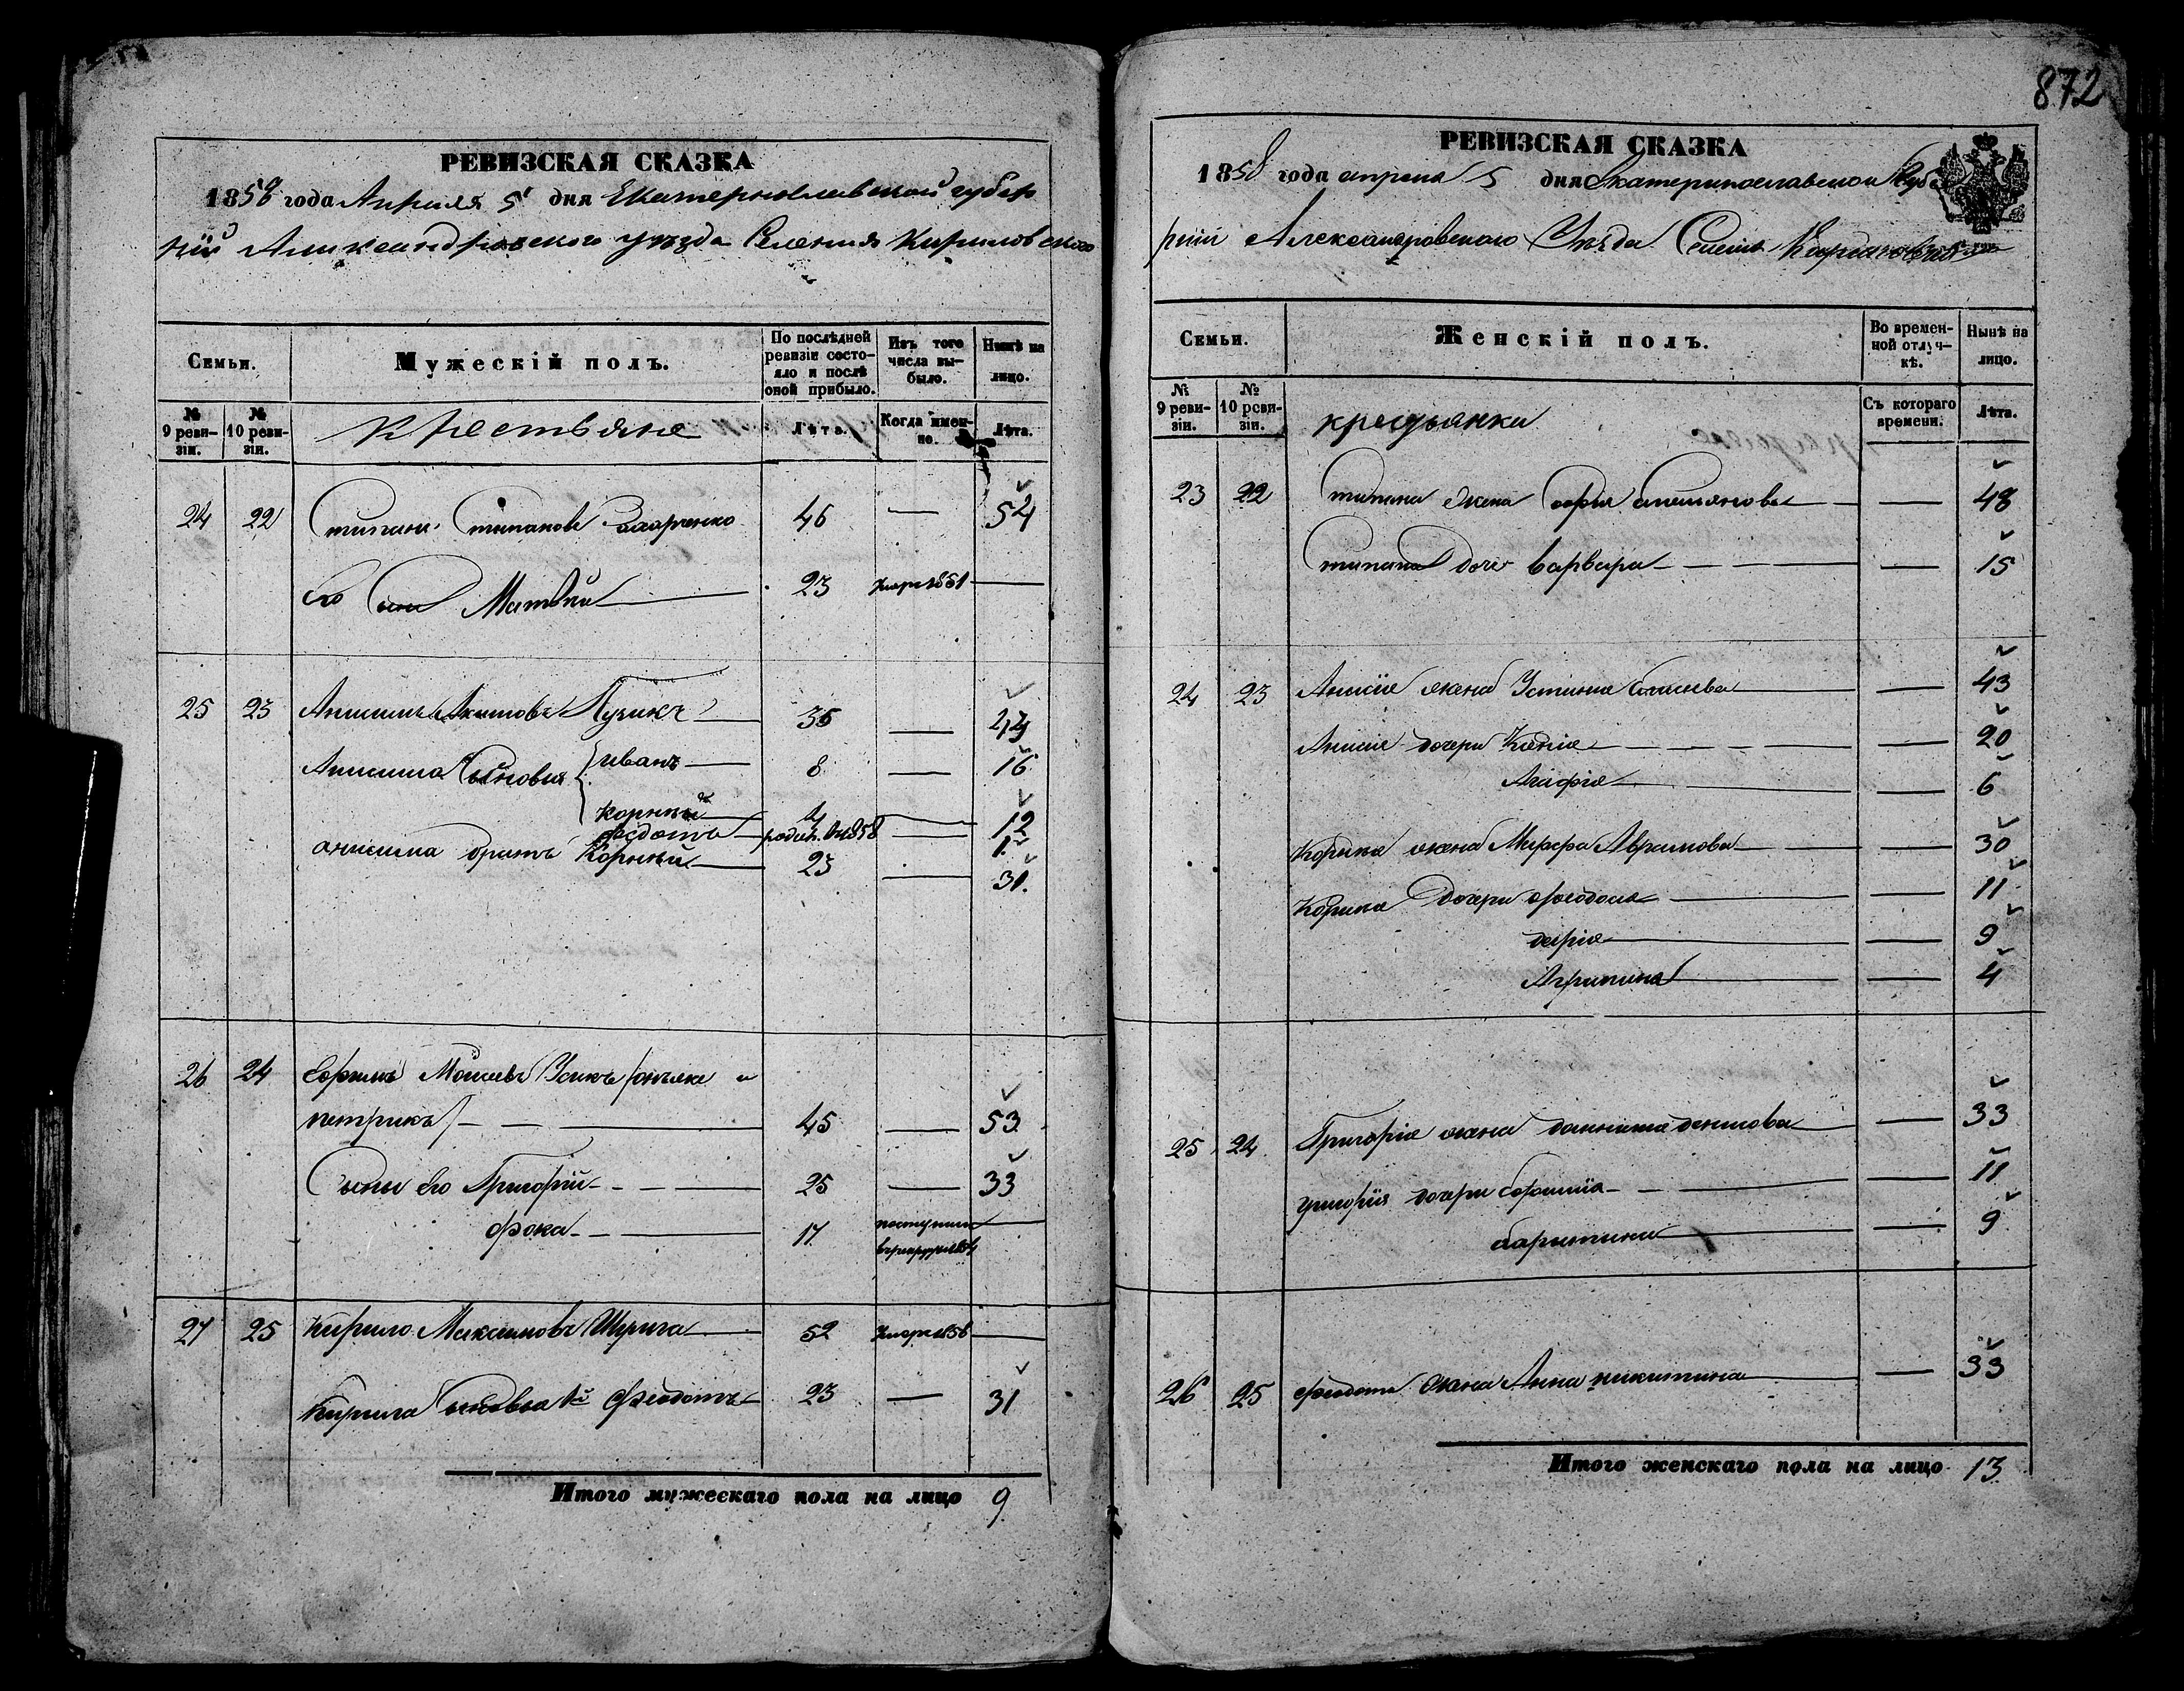 РЕВИЗСКАЯ СКАЗКА
1858 года Апреля 5 дня Екатеринославской губер
нии Александровского уезда Селения Кириловского
Семьи.
Мужескій полъ.
По послѣдней ревизіи состояло и послѣ оной прибыло.
Изъ того числа выбыло.
Нынѣ на лицо.
№ 9 ревизіи.
№ 10 ревизіи.
Крестьяне
Лѣта.
Когда именно.
Лѣта.
24 22 Стипанъ Стипановъ Захарченко 46 — 54
Его Сынъ Матвей 23 умер 1851 —
25 23 Анисимъ Акимовъ 35 — 43
Анисима Сыновья Иванъ 8 — 16
Корней 4 — 12
Федотъ родил. 1858 — 1
анисима братъ Корней 23 — 31
26 24 Ефимъ Моисеевъ Усикъ /онъ же и
петрикъ/ 45 — 53
Сыны его Григорій 25 — 33
Фока 17 поступил
27 25 Кирило Максимовъ 52 умер 1858 —
Кирила Сыновья 1й Феодотъ 23 — 31
Итого мужескаго пола на лицо 9
872
РЕВИЗСКАЯ СКАЗКА
1858 года апреля 5 дня Екатеринославской Губе
рнии Александровского Уезда Селения
Семьи.
Женскій полъ.
Во временной отлучкѣ.
Нынѣ на лицо.
№ 9 ревизіи.
№ 10 ревизіи.
крестьянки
Съ котораго времени.
Лѣта.
23 22 Стипана жена София — 48
Стипана дочь Варвара — 15
24 23 Анисіе жена Устинна — 43
Анисіе дочери Ксеніе — 20
Агафіе — 6
Корнея жена Марфа Аврамова — 30
Корнея дочери Феодосия — 11
дарие — 9
Агрипина — 4
25 24 Григоріе жена денисова — 33
григорія дочери — 11
— 9
26 25 Феодота жена Анна никитина — 33
Итого женскаго пола на лицо 13